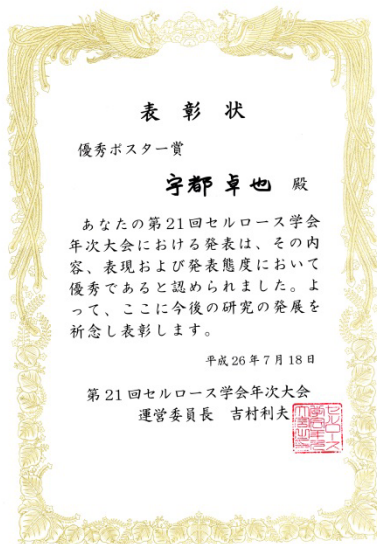 表彰状
優秀ポスター賞
宇都卓也 殿
あなたの第21回セルロース学会
年次大会における発表は、その内
容、表現および発表態度において
優秀であると認められました。よ
って、ここに今後の研究の発展を
祈念し表彰します。
平成26年7月18日
第21回セルロース学会年次大会
運営委員長 吉村利夫